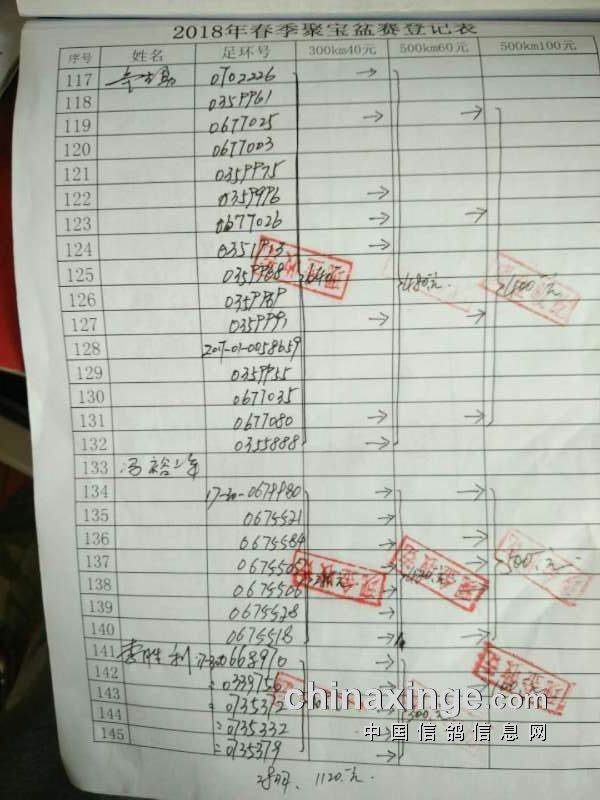 2018年春季聚宝盆赛登记表
序号 姓名 足环号 300km40元 500km60元 500km100元
117 0702226 →
118 0359961
119 0677025 → →
120 0677003
121 0359975
122 0359976 →
123 0677026 → →
124 →
125 0359968 640元 480元 500元
126 0359989
127 0359991 → →
128 2017-01-0058659
129 0359955
130 0677035
131 0677080 → →
132 0355888 →
133 冯裕军
134 17-30-0679980 → → →
135 0675521 → →
136 0675584 → → →
137 0675505 → → 500元
138 0675506 →
139 0675528 → →
140 0675518 → →
141 李胜利 0668970 →
142 0339756 →
143 0135372 →
144 0135332
145 0135379
28羽、1120元.
chinaxinge.com
中国信鸽信息网